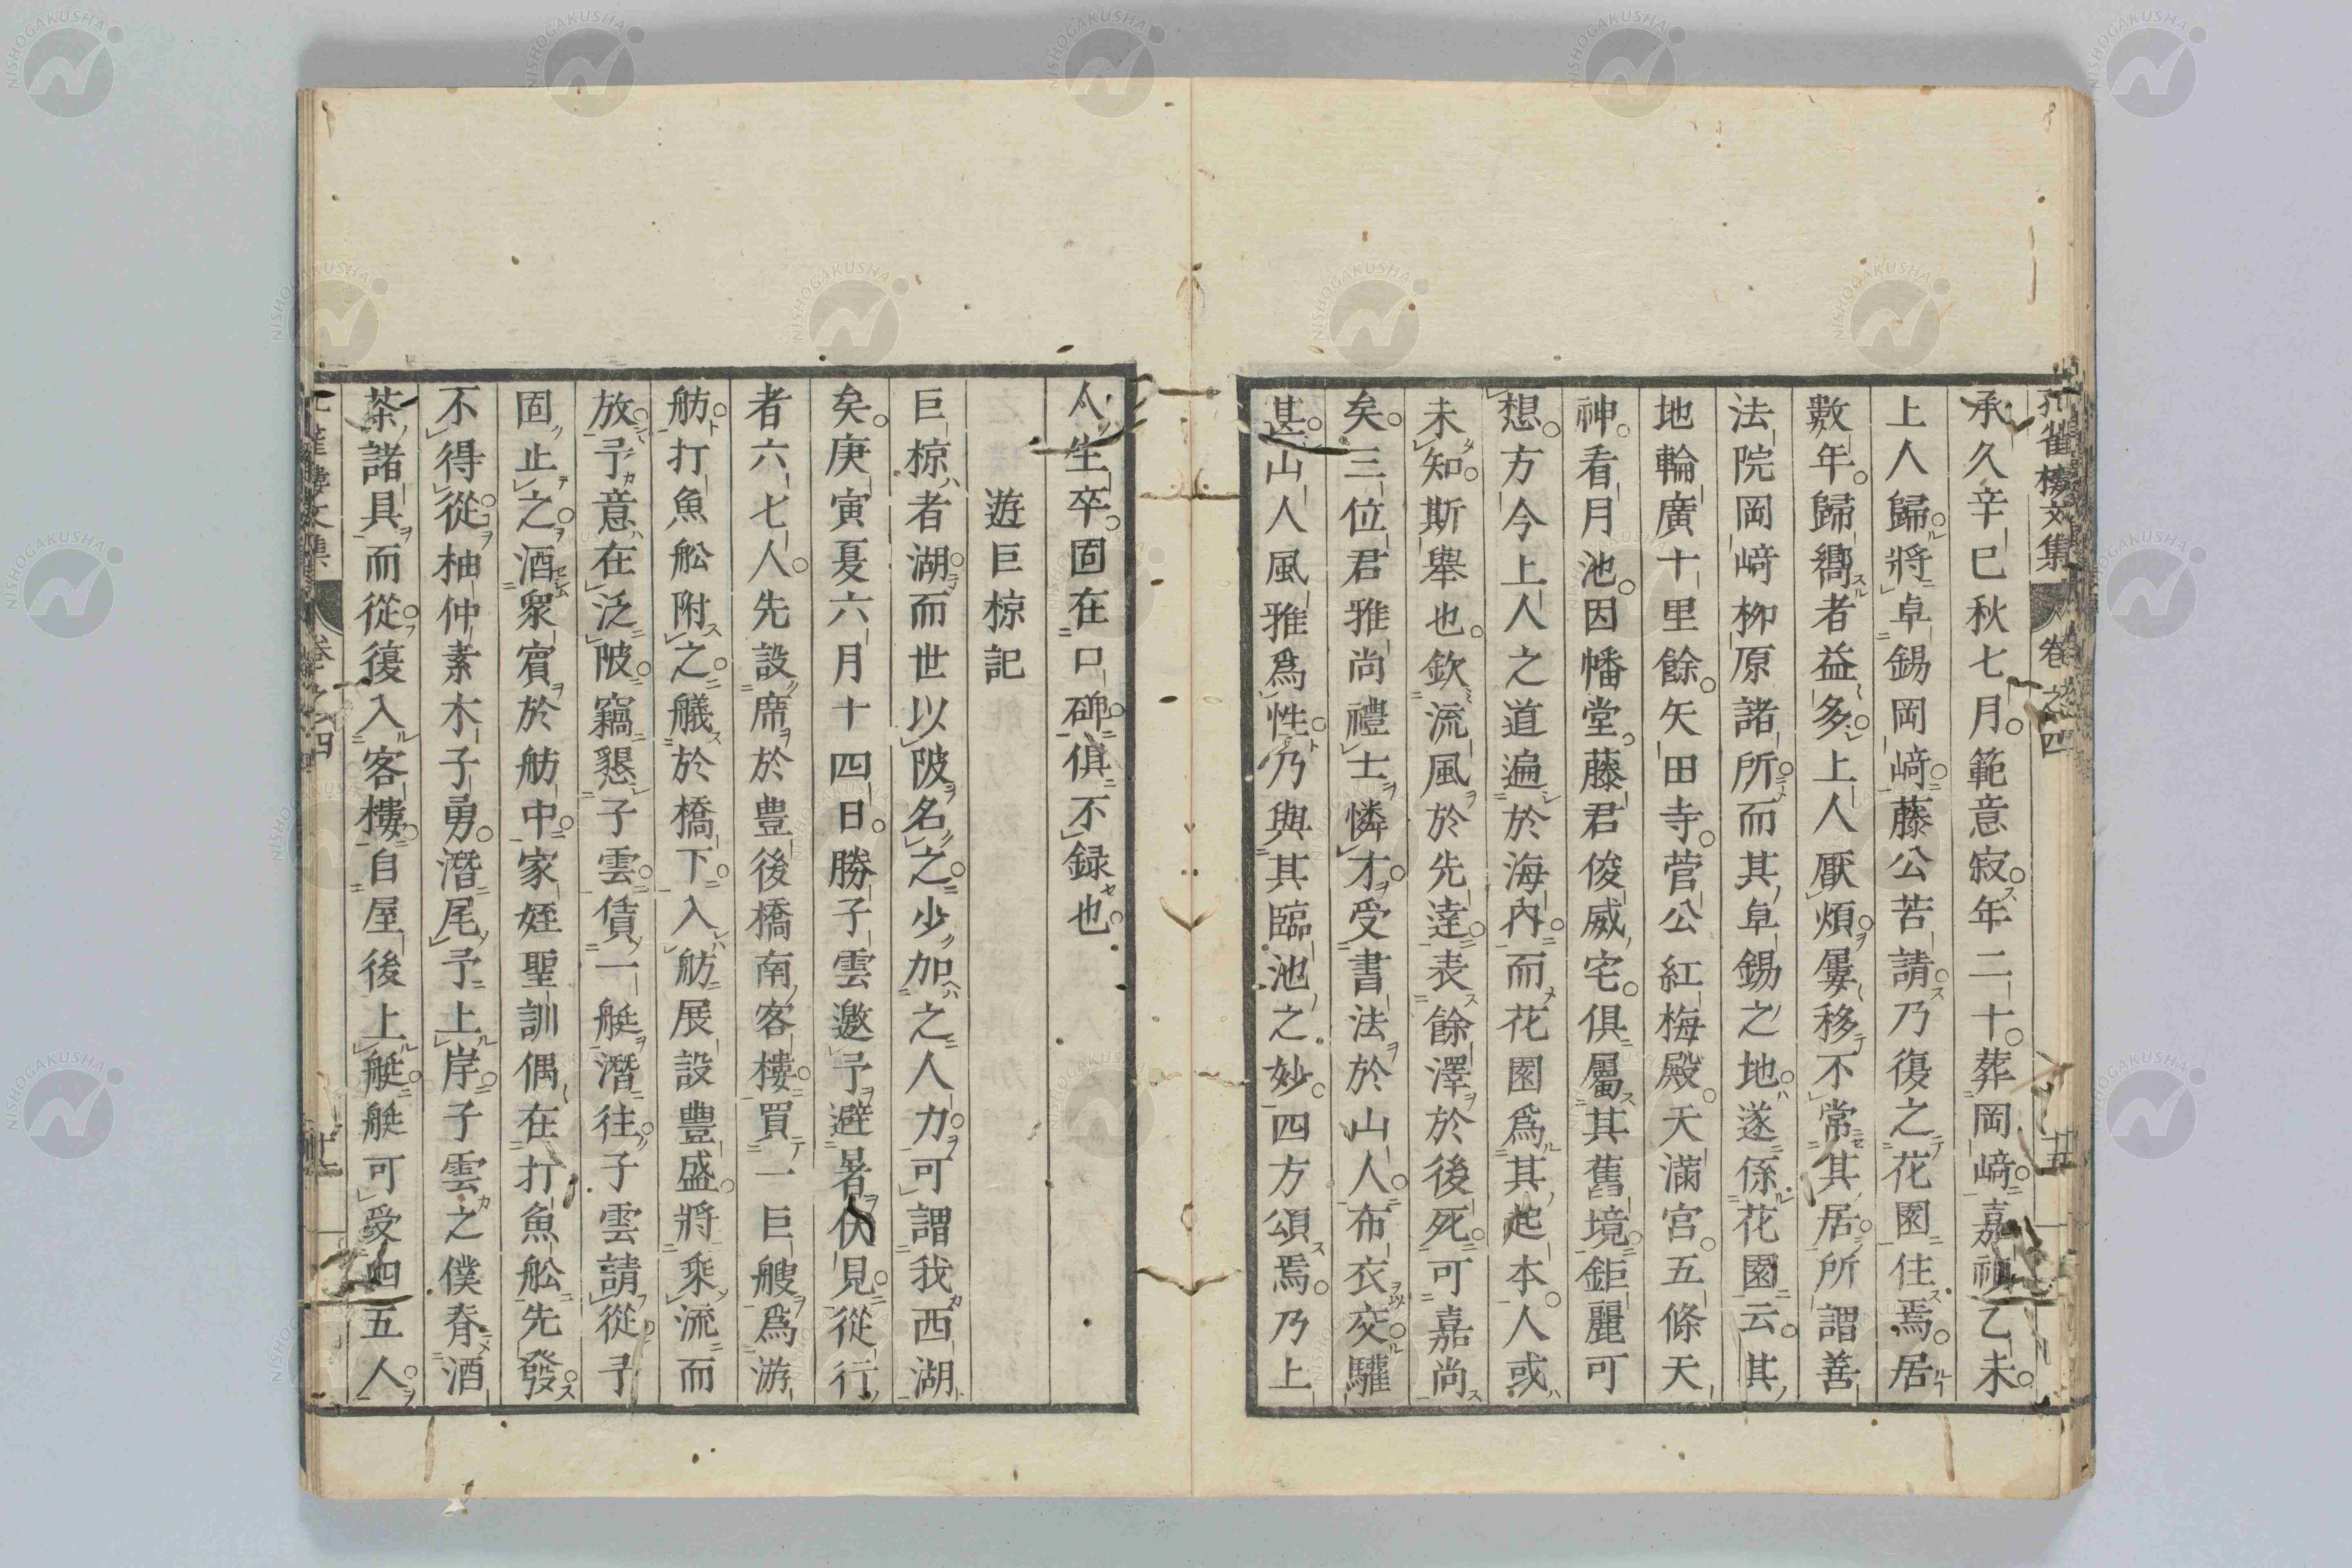 孔雀樓文集 卷之四 十五
承久辛巳秋七月。範意寂。年二十。葬岡﨑。嘉禎乙未。
上人歸。將卓錫岡﨑。藤公苦請。乃復之花園住焉。居
數年。歸嚮者益多。上人厭煩。屢移不常其居。所謂善
法院岡﨑柳原諸所。而其卓錫之地。遂係花園云。其
地輪廣十里餘。矢田寺。菅公紅梅殿。天滿宮。五條天
神。看月池。因幡堂。藤君俊威宅。俱屬其舊境。鉅麗可
想。方今上人之道遍於海內。而花園爲其起本。人或
未知。斯舉也。欽流風於先達。表餘澤於後死。可嘉尚
矣。三位君雅尚禮士憐才。受書法於山人。布衣交驩
甚。山人風雅爲性。乃與其臨池之妙。四方頌焉。乃上
人生卒。固在口碑。俱不録也。
遊巨椋記
巨椋者湖。而世以陂名之。少加之人力。可謂我西湖
矣。庚寅夏六月十四日。勝子雲邀予避暑伏見。從行
者六七人。先設席於豊後橋南客樓。買一巨艘爲游
舫。打魚舩附之。艤於橋下。入舫展設豊盛。將乘流而
放。予意在泛陂。竊懇子雲。賃一艇潛往。子雲請從予
固止之。酒衆賓於舫中。家姪聖訓偶在打魚舩先發。
不得從。柚仲素木子勇。潛尾予上岸。子雲之僕脊酒
茶諸具而從。復入客樓。自屋後上艇。艇可受四五人。
卷之四